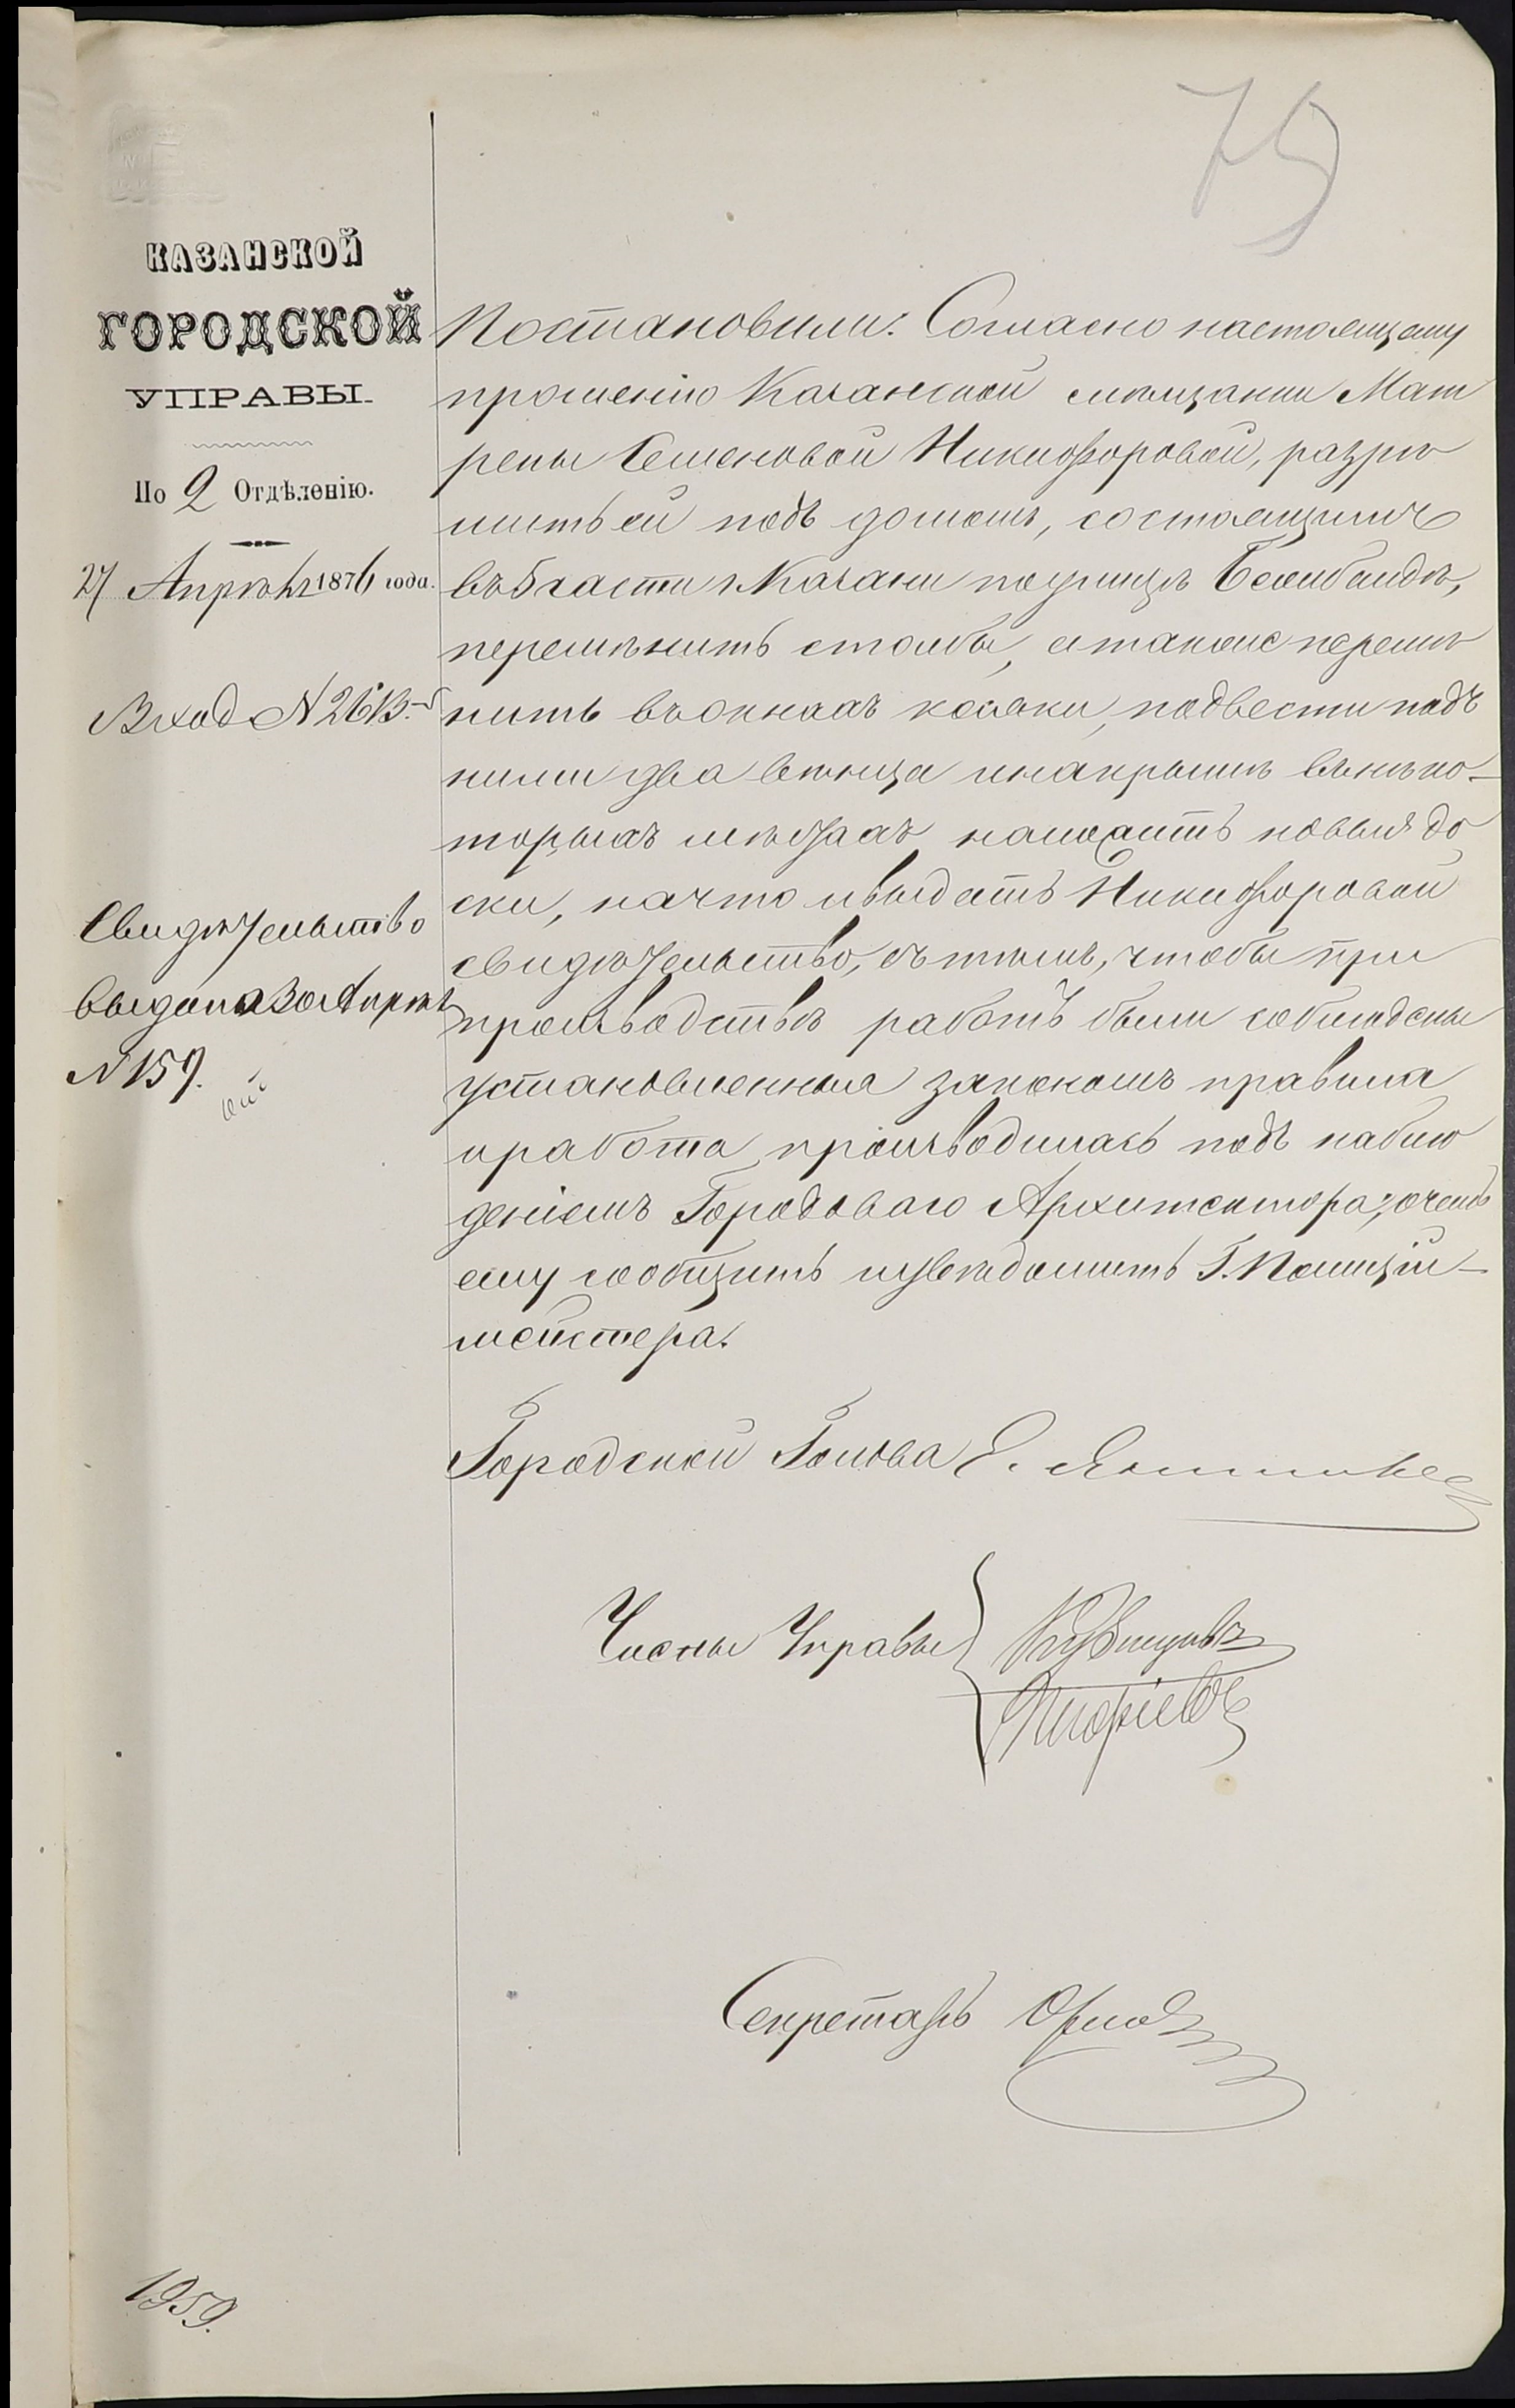 75
КАЗАНСКОЙ
ГОРОДСКОЙ
УПРАВЫ.
По 2 Отдѣленію.
27 Апрѣля 1876 года.
Вход № 2613.
Свидѣтельство
выдано 30 Апрѣля
№ 159.
Постановили: Согласно настоящему
прошенію Казанской мѣщанки Мат
рены Семеновой Никифоровой, разрѣ
шить ей подъ домомъ, состоящимъ
въ 5 части г. Казани по улицѣ
перемѣнить столбы, а также перемѣ
нить въ окнахъ косяки, подвести подъ
ними два вѣнца и на крышѣ въ нѣко-
торыхъ мѣстахъ наложить новыя до
ски, на что и выдать Никифоровой
свидѣтельство, съ тѣмъ, чтобы при
производствѣ работъ были соблюдены
установленныя закономъ правила
и работа производилась подъ наблю
деніемъ Городоваго Архитектора, о чемъ
ему сообщить и увѣдомить Г. Полиціи-
мейстера.
Городской Голова Е.
Члены Управы
Секретарь Орлов
1959.